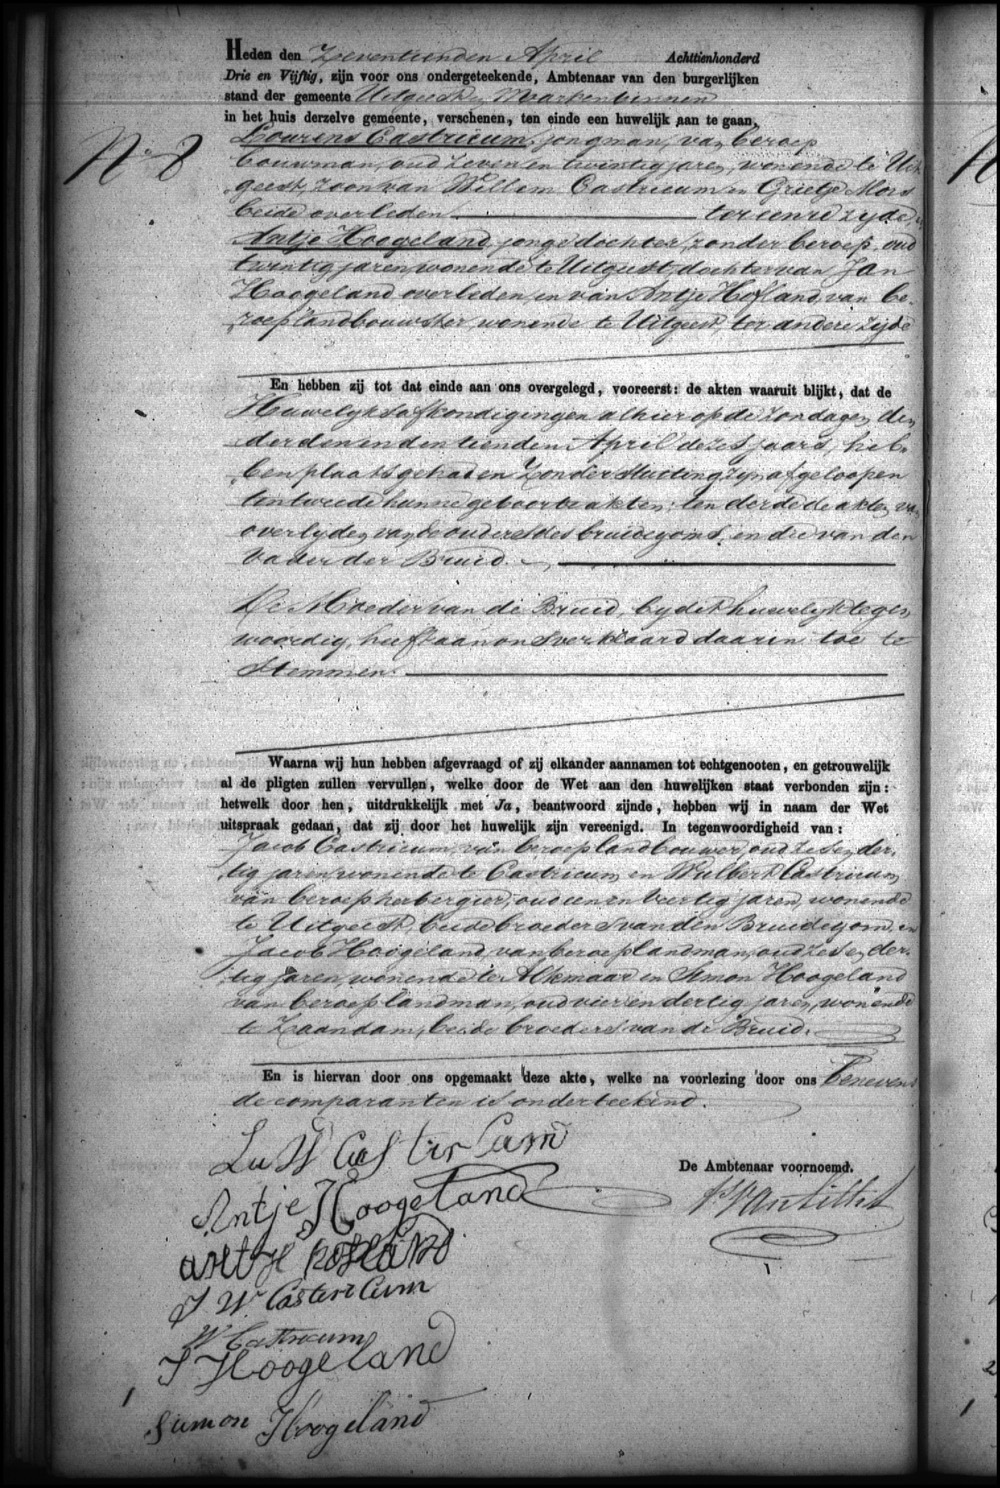 Heden den Zeventienden April Achttienhonderd
Drie en Vijftig, zijn voor ons ondergeteekende, Ambtenaar van den burgerlijken
stand der gemeente Uitgeest en Markenbinnen
in het huis derzelve gemeente, verschenen, ten einde een huwelijk aan te gaan,
No 8
Lourens Castricum, jongman, van beroep
bouwman, oud zeven en twintig jaren, wonende te Uit-
geest, zoon van Willem Castricum en Grietje Mors
beide overleden ter eenre zijde, en
Antje Hoogeland, jonge dochter, zonder beroep, oud
twintig jaren, wonende te Uitgeest, dochter van Jan
Hoogeland overleden, en van Antje Hofland, van be-
roep landbouwster, wonende te Uitgeest, ter andere zijde
En hebben zij tot dat einde aan ons overgelegd, vooreerst: de akten waaruit blijkt, dat de
Huwelijksafkondigingen alhier op de Zondagen den
derden en den tienden April dezes jaars, heb-
ben plaats gehad en zonder stuiting zijn afgeloopen
ten tweede hunne geboorteakten; ten derde de akten van
overlijden van de ouders des bruidegoms, en die van den
vader der Bruid.
De Moeder van de Bruid, bij dit huwelijk tegen
woordig, heeft aan ons verklaard daarin toe te
Stemmen.
Waarna wij hun hebben afgevraagd of zij elkander aannamen tot echtgenooten, en getrouwelijk
al de pligten zullen vervullen, welke door de Wet aan den huwelijken staat verbonden zijn:
hetwelk door hen, uitdrukkelijk met Ja, beantwoord zijnde, hebben wij in naam der Wet
uitspraak gedaan, dat zij door het huwelijk zijn vereenigd. In tegenwoordigheid van:
Jacob Castricum, van beroep landbouwer, oud zes en der-
tig jaren, wonende te Castricum, en Wulbert Castricum,
van beroep herbergier, oud een en veertig jaren, wonende
te Uitgeest, beide broeders van den Bruidegom, en
Jacob Hoogeland, van beroep landman, oud zes en der-
tig jaren, wonende ter Alkmaar en Simon Hoogeland
van beroep landman, oud vier en dertig jaren, wonende
te Zaandam, beide broeders van de Bruid.
En is hiervan door ons opgemaakt deze akte, welke na voorlezing door ons benevens
de comparanten is onderteekend.
De Ambtenaar voornoemd.
Antje Hoogeland
antje Hofland
J W Castericum
W Castricum
J Hoogeland
Siemon Hoogeland